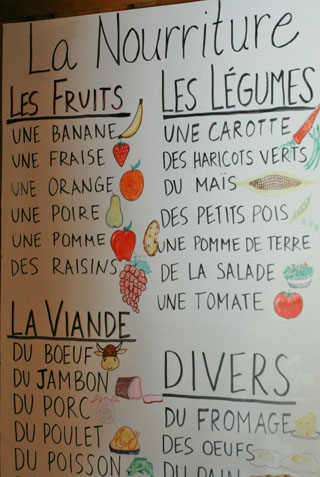 La Nourriture
LES FRUITS
UNE BANANE
UNE FRAISE
UNE ORANGE
UNE POIRE
UNE POMME
DES RAISINS
LES LÉGUMES
UNE CAROTTE
DES HARICOTS VERTS
DU MAÏS
DES PETITS POIS
UNE POMME DE TERRE
DE LA SALADE
UNE TOMATE
LA VIANDE
DU BOEUF
DU JAMBON
DU PORC
DU POULET
DU POISSON
DIVERS
DU FROMAGE
DES OEUFS
DU PAIN